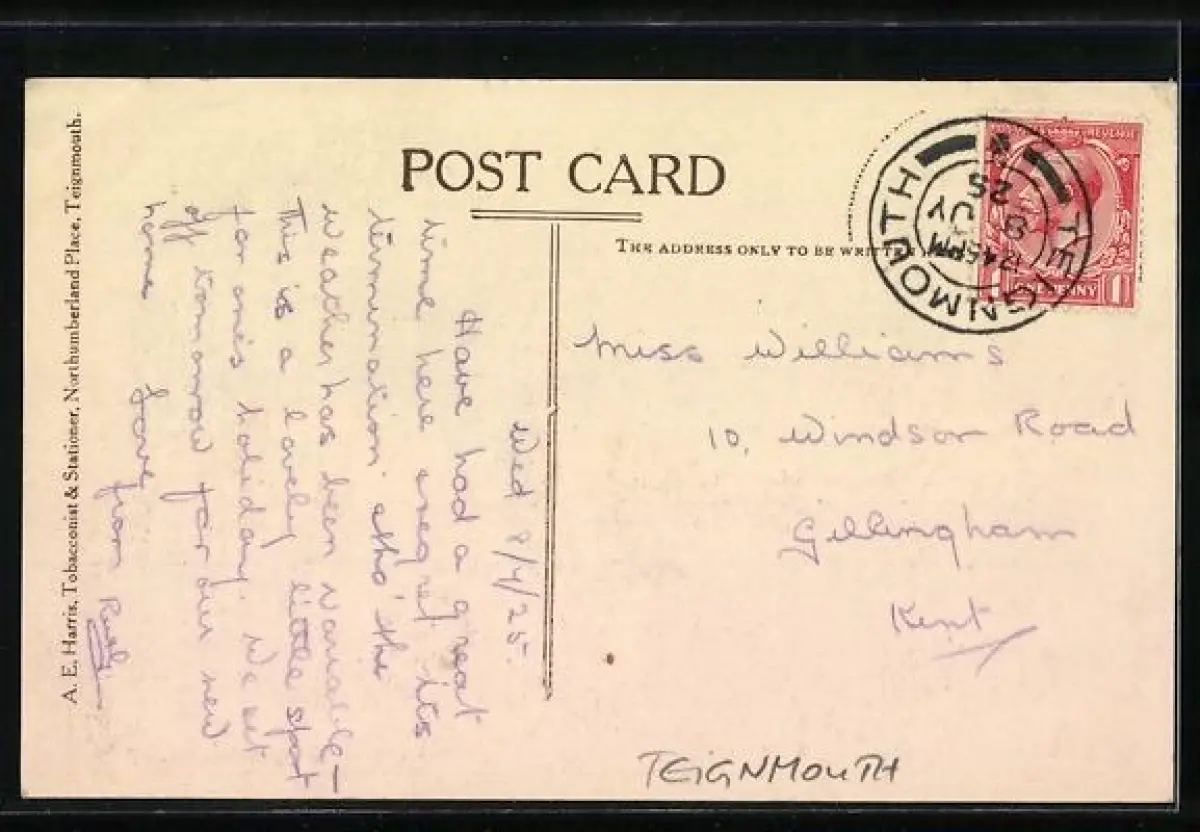 POST CARD
THE ADDRESS ONLY TO BE WRITTEN
TEIGNMOUTH
12 45 PM
8 JY
25
REVENUE
ONE PENNY
A. E. Harris, Tobacconist & Stationer, Northumberland Place, Teignmouth.
Wed 8/7/25.
Have had a great
time here & regret its
termination. altho' the
weather has been variable—
This is a lovely little spot
for one's holiday. We set
off tomorrow for our new
home. Love from
Miss Williams
10, Windsor Road
Gillingham
Kent
TEIGNMOUTH